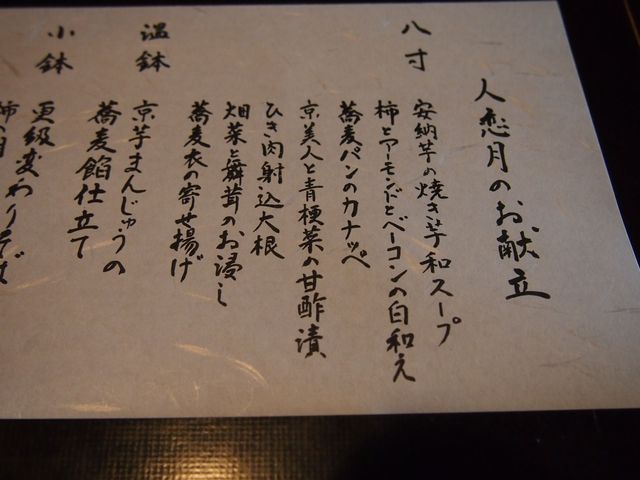 人恋月のお献立
八寸
安納芋の焼き芋和スープ
柿とアーモンドとベーコンの白和え
蕎麦パンのカナッペ
京美人と青梗菜の甘酢漬
ひき肉射込大根
畑菜と舞茸のお浸し
蕎麦衣の寄せ揚げ
温鉢
京芋まんじゅうの
蕎麦餡仕立て
小鉢
更級変わりそば